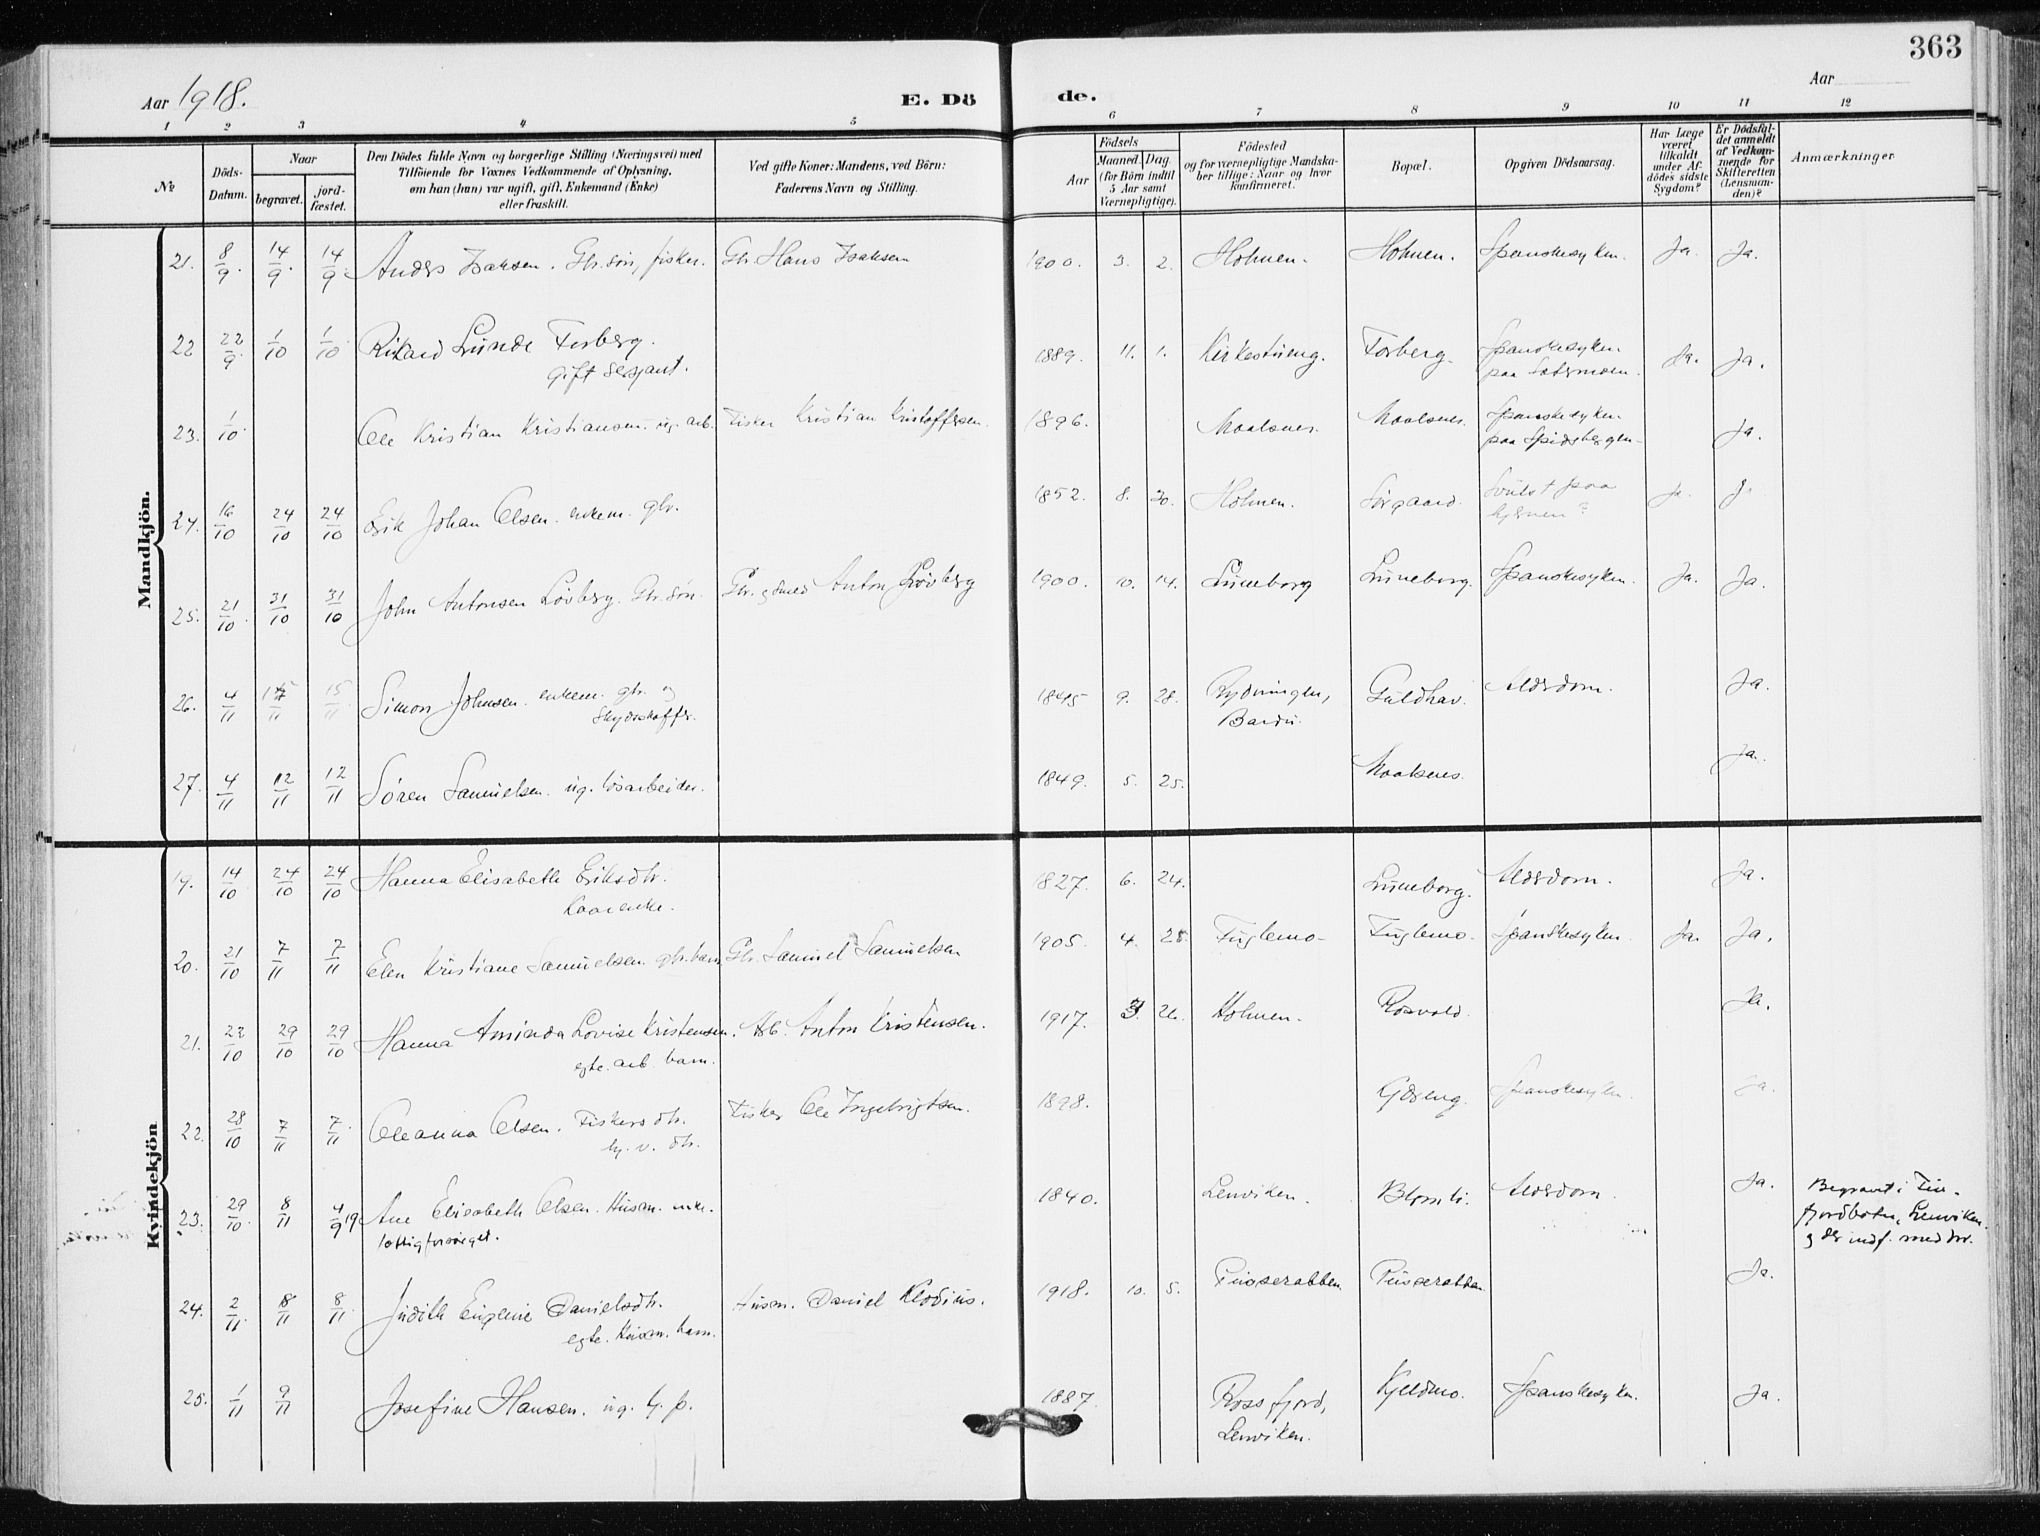 363
Aar 1918.
E. Dö
de.
Aar
1 2 3 4 5 6 7 8 9 10 11 12
№
Döds-Datum.
Naar
begravet.
jord-fæstet.
Den Dödes fulde Navn og borgerlige Stilling (Næringsvei) med
Tilföiende for Voxnes Vedkommende af Oplysning,
om han (hun) var ugift, gift, Enkemand (Enke)
eller fraskilt.
Ved gifte Koner: Mandens, ved Börn:
Faderens Navn og Stilling.
Födsels
Aar
Maaned. Dag.
(for Börn indtil
5 Aar samt
Værnepligtige).
Födested
og for værnepligtige Mandska-
ber tillige: Naar og hvor
konfirmeret.
Bopæl.
Opgiven Dödsaarsag.
Har Læge
været
tilkaldt
under Af-
dödes sidste
Sygdom?
Er Dödsfal-
det anmeldt
af Vedkom-
mende for
Skifteretten
(Lensman-
den)?
Anmærkninger
Mandkjön.
21. 8/9. 14/9. 14/9. Anders Isaksen. Gbr. søn, fisker. Gbr. Hans Isaksen 1900. 3. 2. Holmen. Holmen. Spanskesyken. Ja. Ja.
22 22/9. 1/10 1/10. Rikard Lunde Forberg. 1889. 11. 1. Kirkestueng. Forberg. Spanskesyken Ja. Ja.
gift sersjant. paa Sætermoen.
23. 1/10. Ole Kristian Kristiansen. ug. arb. Fisker Kristian Kristoffersen. 1896. Maalsnes. Maalsnes. Spanskesyken Ja.
paa Spidsbergen.
24. 16/10 24/10 24/10 Erik Johan Olsen. enkem. gbr. 1852. 8. 20. Holmen. Sørgaard. Svulst paa
hjernen?
25. 21/10. 31/10 31/10 John Antonsen Løvberg. Gbr. søn. Gbr. & smed Anton Løvberg 1900. 10. 14. Luneborg Luneborg. Spanskesyken. Ja. Ja.
26. 4/11 15/11 Simon Johnsen. enkem. gbr. og 1845 9. 28. Rydningen, Guldhav. Alderdom. Ja.
Skydsskaffer. Bardu.
27. 4/11 12/11 12/11 Søren Samuelsen. ug. løsarbeider. 1849. 5. 25. Maalsnes. Ja.
Kvindekjön
19. 14/10 24/10 24/10 Hanna Elisabeth Eriksdtr. 1827. 6. 24. Luneborg. Alderdom. Ja.
kaarenke.
20. 21/10 7/11 7/11 Elen Kristiane Samuelsen. gbr. barn Gbr. Samuel Samuelsen 1905. 4. 25. Fuglemo. Fuglemo. Spanskesyken. Ja. Ja.
21. 23/10 29/10 29/10 Hanna Aminda Lovise Kristensen. Arb. Anton Kristensen. 1917. 3. 26. Holmen. Rosvold. Ja.
egte. arb. barn.
22. 28/10 7/11 7/11. Oleanna Olsen. Fiskersdtr. Fisker Ole Ingebrigtsen. 1898. Spanskesyken. Ja.
hj. v. dtr.
23. 29/10. 8/11 4/9 19 Ane Elisabeth Olsen. Husm. enke. 1840. Lenviken. Alderdom. Ja. Begravet i Fin-
fattigforsørget. fjordbotn, Lenviken.
24. 2/11. 8/11 8/11. Judith Eugenie Danielsdtr. Husm. Daniel Klodius. 1918. 10. 5. Ja.
egte. Husm. barn.
25. 1/11 9/11 Josefine Hansen. ug. hj. p. 1887. Rossfjord, Kjeldmo. Spanskesyken. Ja.
Lenviken.